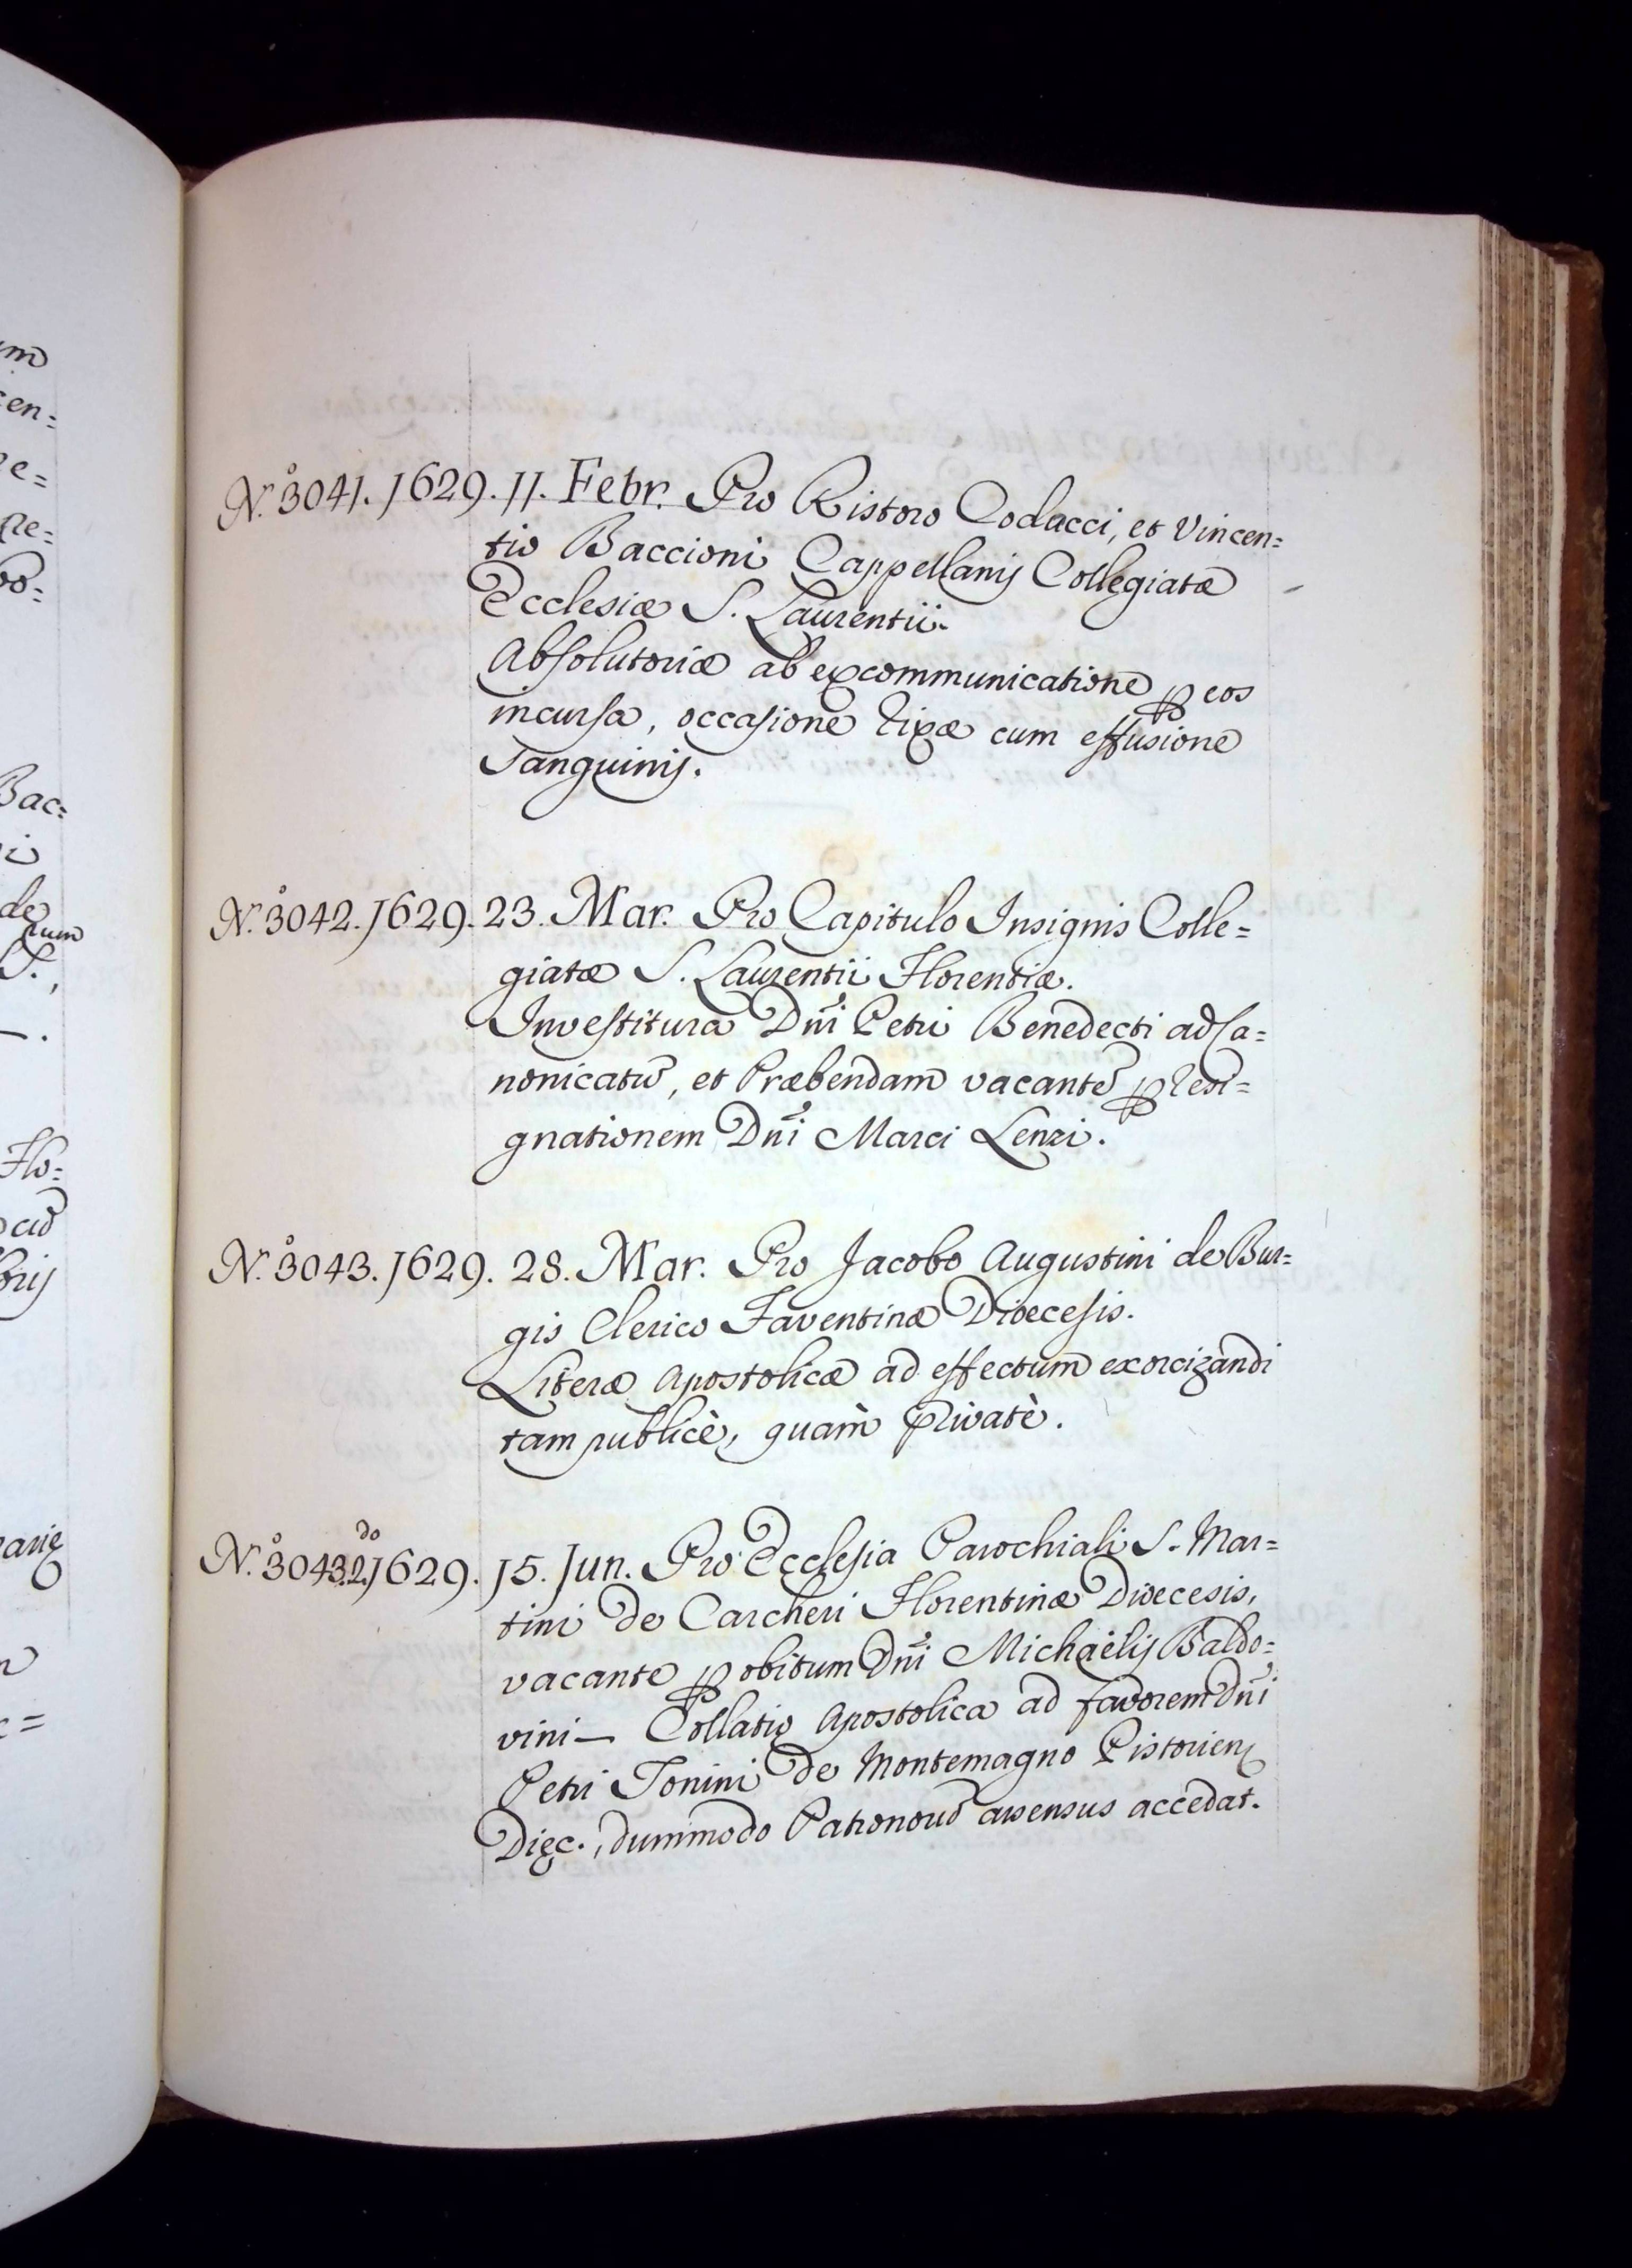 um
cen=
re=
re=
bo=
Bac=
i
de
rum
S.,
— .
Flo=
orij
arię
N.º 3041. 1629. 11. Febr. Pro Ristoro Codacci, et Vincen=
tio Baccioni Cappellanis Collegiatæ
Ecclesiæ S. Laurentii.
Absolutoriæ ab excommunicatione ꝑ eos
incursa, occasione rixæ cum effusione
Sanguinis.
N.º 3042. 1629. 23. Mar. Pro Capitulo Insignis Colle=
giatæ S. Laurentii Florentiæ.
Investitura Dñi Petri Benedecti ad Ca=
nonicatū, et Præbendam vacantē ꝑ resi=
gnationem Dñi Marci Lenzi.
N.º 3043. 1629. 28. Mar. Pro Jacobo Augustini de Bur=
gis Clerico Faventinæ Dioecesis.
Literæ Apostolicæ ad effectum exorcizandi
tam publicè, quàm privatè.
N.º 3043.2.do 1629. 15. Jun. Pro Ecclesia Parochiali S. Mar=
tini de Carcheri Florentinæ Dioecesis,
vacante ꝑ obitum Dñi Michaëlis Baldo=
vini — Collatio Apostolica ad favorem Dñi
Petri Tonini de Montemagno Pistorien.
Dięc., dummodo Patronorū assensus accedat.